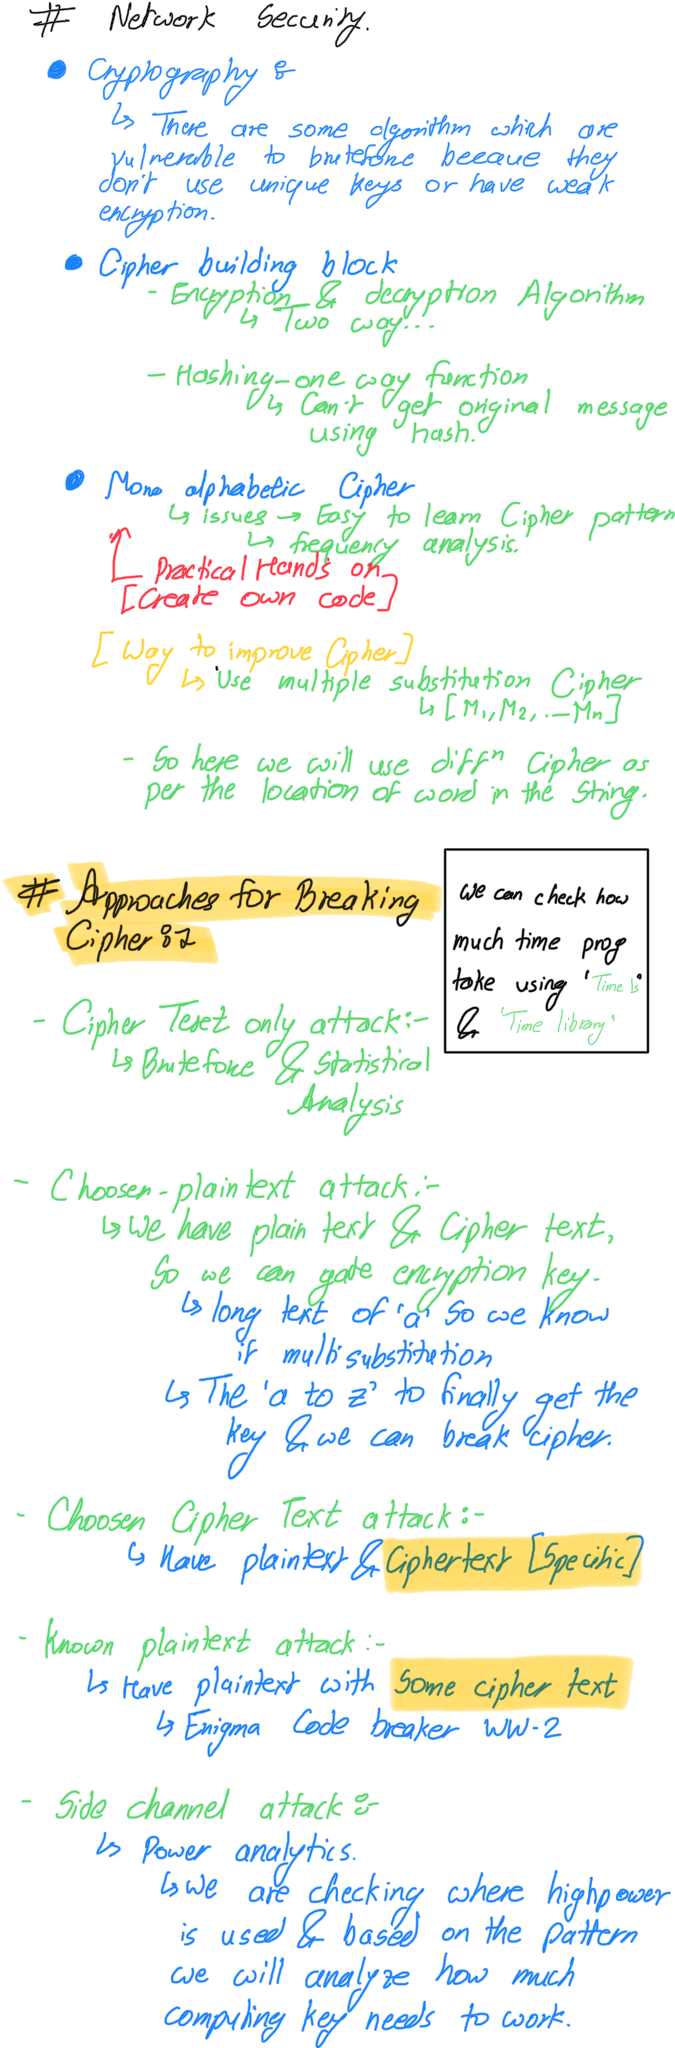 # Network Security.
Cryptography :-
↳ There are some algorithm which are
vulnerable to bruteforce because they
don't use unique keys or have weak
encryption.
Cipher building block
- Encryption & decryption Algorithm
↳ Two way...
- Hashing - one way function
↳ Can't get original message
using hash.
Mono alphabetic Cipher
↳ issues → Easy to learn Cipher pattern
↳ frequency analysis.
Practical Hands on
[Create own code]
[Way to improve Cipher]
↳ Use multiple substitution Cipher
↳ [M1, M2, ... Mn]
- So here we will use diffⁿ Cipher as
per the location of word in the String.
# Approaches for Breaking
Cipher :-
We can check how
much time prog
take using 'Time ls"
& 'Time library"
- Cipher Text only attack :-
↳ Bruteforce & Statistical
Analysis
- Choosen-plaintext attack :-
↳ We have plain text & Cipher text,
So we can gate encryption key.
↳ long text of 'a' so we know
if multisubstitution
↳ The 'a to z' to finally get the
key & we can break cipher.
- Choosen Cipher Text attack :-
↳ Have plaintext & Ciphertext [Specific]
- Known plaintext attack :-
↳ Have plaintext with Some cipher text
↳ Enigma Code breaker WW-2
- Side channel attack :-
↳ Power analytics.
↳ We are checking where highpower
is used & based on the pattern
we will analyze how much
computing key needs to work.